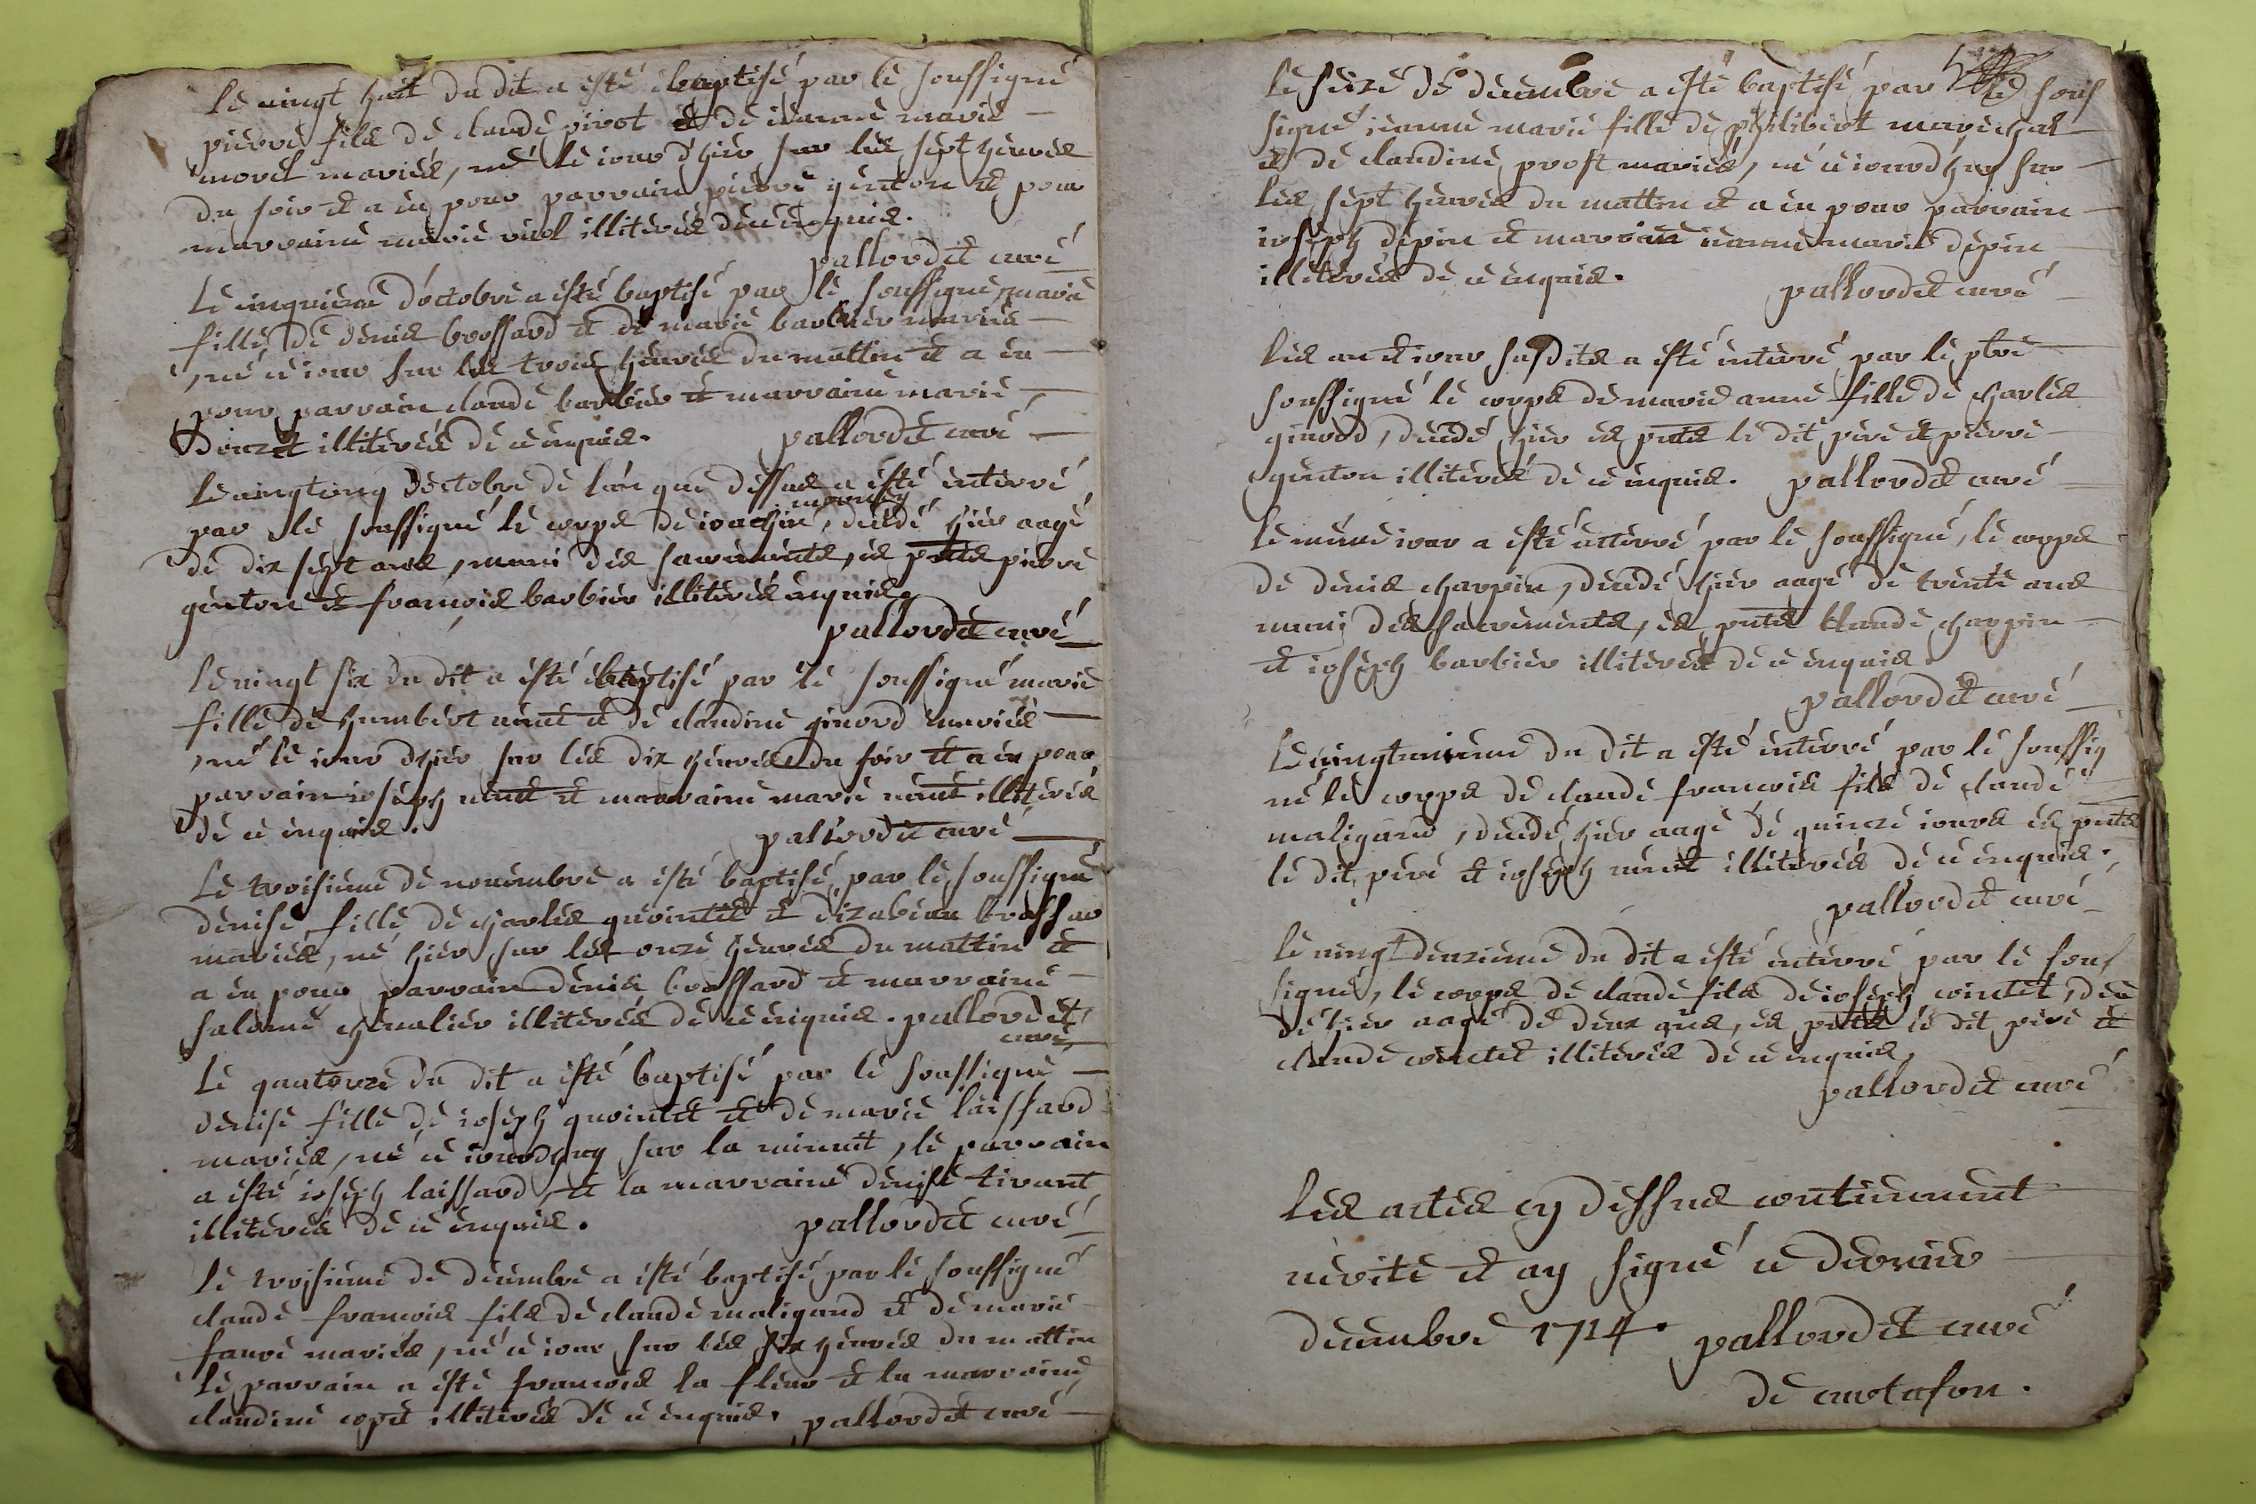 le vingt huit du dit a esté baptisé par le soussigné
pierre fils de claude pirot et de ieanne marie
morel mariés, né le iour d'hier sur les sept heures
du soir et a eu pour parrain pierre genton et pour
marraine marie illiterés de ce enquis.
pallordet curé
le cinquieme d'octobre a esté baptisé par le soussigné marie
fille de denis brossard et de marie barbier mariés
né ce iour sur les trois heures du mattin et a eu
pour parrain claude barbier et marraine marie
illiterés de ce enquis. pallordet curé
le vingtcinq d'octobre de l'an que dessus a esté enterré
par le soussigné le corps de ioachin, decedé hier aagé
de dix sept ans, muni des sacrements, es pnts pierre
genton et francois barbier illiterés enquis
pallordet curé
le vingt six du dit a esté baptisé par le soussigné marie
fille de humbert et de claudine ginord mariés
né le iour d'hier sur les dix heures du soir et a eu pour
parrain ioseph et marraine marie illiterés
de ce enquis. pallordet curé
le troisieme de nouembre a esté baptisé par le soussigné
denise fille de charles quointet et brossar
mariés, né hier sur les onze heures du mattin et
a eu pour parrain denis brossard et marraine
salome cheualier illiterés de ce enquis. pallordet
curé
le quatorze du dit a esté baptisé par le soussigné
denise fille de ioseph quointet et de marie laissard
mariés, né ce iourdhuy sur la minuit, le parrain
a esté ioseph laissard et la marraine denise tirant
illiterés de ce enquis. pallordet curé
le troisieme de decembre a esté baptisé par le soussigné
claude francois fils de claude maligand et de marie
faure mariés, né ce iour sur les six heures du mattin
le parrain a esté francois la fleur et la marraine
claudine illiterés de ce enquis. pallordet curé
le seize de decembre a esté baptisé par le sous
signé ieanne marie fille de philibert marechal
et de claudine prost mariés, né ce iourdhuy sur
les sept heures du mattin et a eu pour parrain
ioseph depin et marraine ieanne marie depin
illiterés de ce enquis. pallordet curé
les an et iour susdits a esté enterré par le ptre
soussigné le corps de marie anne fille de charles
ginord, decedé hier es pnts le dit pere et pierre
genton illiterés de ce enquis. pallordet curé
le même iour a esté enterré par le soussigné, le corps
de denis charpin, decedé hier aagé de trente ans
muni des sacrements, es pnts claude charpin
et ioseph barbier illiterés de ce enquis.
pallordet curé
le vingtunieme du dit a esté enterré par le soussig
né le corps de claude francois fils de claude
maligand, decedé hier aagé de quinze iours es pnts
le dit pere et ioseph illiterés de ce enquis.
pallordet curé
le vingt deuzieme du dit a esté enterré par le sous
signé, le corps de claude fils de ioseph cointet, dece
dé hier aagé de deux ans, es pnts le dit pere et
claude cointet illiterés de ce enquis.
pallordet curé
les actes cy dessus contiennent
verité et ay signé ce dernier
decembre 1714. pallordet curé
de curtafon.